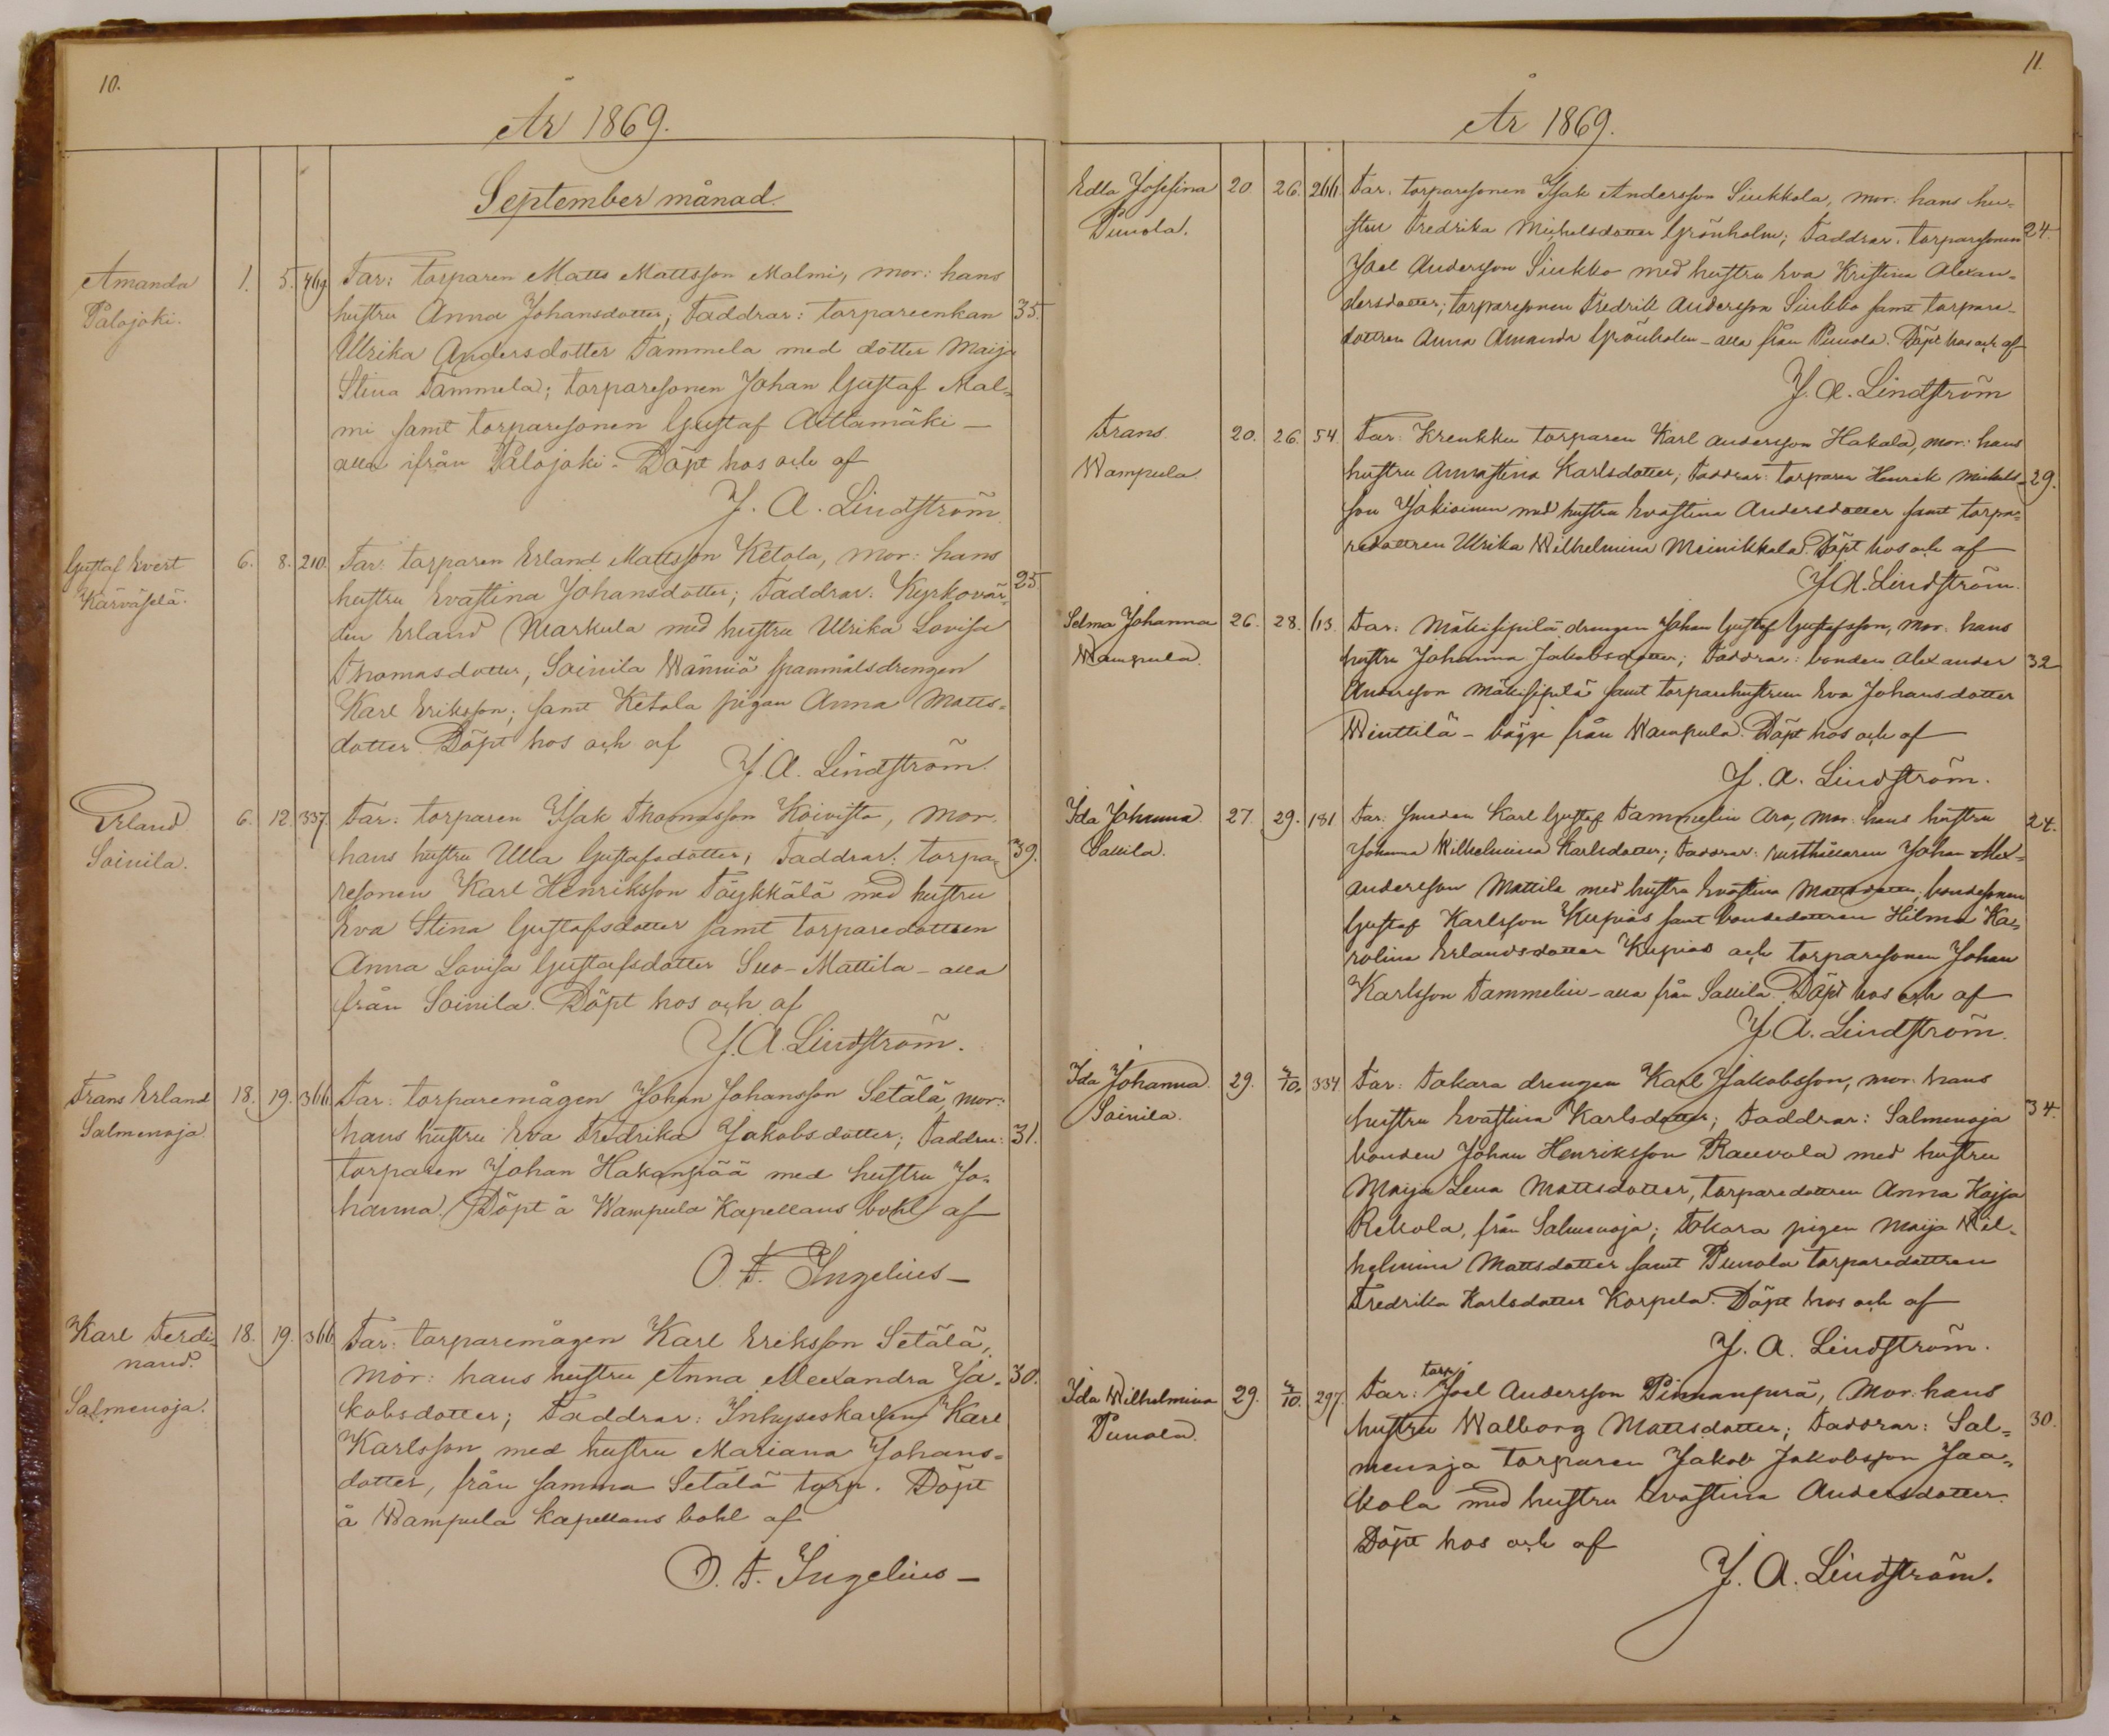 10.
År 1869.
September månad.
Amanda 1. 5. 469 Far: torparen Matts Mattsson Malmi, mor: hans
Palojoki. hustru Anna Johansdotter; Faddrar: torpareenkan 35.
Ulrika Andersdotter Tammela med dotter Maija
Stina Tammela; torparesonen Johan Gustaf Mal-
mi samt torparesonen Gustaf Aittamäki —
alla ifrån Palojoki. Döpt hos och af
J. A. Lindström
Gustaf Evert 6. 8. 210. Far: torparen Erland Mattsson Ketola, mor: hans
Karväselä. hustru Evastina Johansdotter; Faddrar: Kyrkovär- 25
den Erland Markula med hustru Ulrika Lovisa
Thomasdotter, Soinila Wänniö spanmålsdrengen
Karl Eriksson; samt Ketola pigan Anna Matts-
dotter. Döpt hos och af
J. A. Lindström.
Erland 6. 12. 337. Far: torparen Isak Thomasson Koivisto, mor.
Soinila. hans hustru Ulla Gustafsdotter; Faddrar: torpa- 39.
resonen Karl Henriksson Täykkälä med hustru
Eva Stina Gustafsdotter samt torparedottren
Anna Lovisa Gustafsdotter Suo-Mattila - alla
från Soinila. Döpt hos och af
J. A. Lindström.
Frans Erland 18. 19. 366. Far: torparemågen Johan Johansson Setälä, mor:
Salmenoja. hans hustru Eva Fredrika Jakobsdotter; Faddrar: 31.
torparen Johan Hakanpää med hustru Jo-
hanna. Döpt å Wampula Kapellans bohl af
O. F. Ingelius —
Karl Ferdi- 18. 19. 366. Far: torparemågen Karl Eriksson Setälä,
nand. mor: hans hustru Anna Alexandra Ja- 30.
Salmenoja. kobsdotter; Faddrar: Inhyseskarlen Karl
Karlsson med hustru Mariana Johans-
dotter, från samma Setälä torp. Döpt
å Wampula Kapellans bohl af
O. F. Ingelius —
11.
År 1869.
Edla Josefina 20. 26. 266. Far: torparesonen Isak Andersson Siukkola, mor: hans hu-
Punola. stru Fredrika Michelsdotter Grönholm; Faddrar: torparesonen 24.
Joel Andersson Siukko med hustru Eva Kristina Alexan-
dersdotter; torparesonen Fredrik Andersson Siukko samt torpare-
dottren Anna Amanda Grönholm - alla från Punola. Döpt hos och af
J. A. Lindström
Frans 20. 26. 54. Far: Krenkku torparen Karl Andersson Hakala, mor: hans
Wampula. hustru Annastina Karlsdotter; Faddrar: torparen Henrik Mickels- 29.
son Jokioinen med hustru Evastina Andersdotter samt torpa-
redottren Ulrika Wilhelmina Meinikkala. Döpt hos och af
J. A. Lindström.
Selma Johanna 26. 28. 113. Far: Mäkisipilä drengen Johan Gustaf Gustafsson, mor: hans
Wampula. hustru Johanna Jakobsdotter; Faddrar: bonden Alexander 32
Andersson Mäkisipilä samt torparehustrun Eva Johansdotter
Winttilä - bägge från Wampula. Döpt hos och af
J. A. Lindström.
Ida Johanna 27. 29. 181 Far: Smeden Karl Gustaf Tammelin Aro, mor: hans hustru 24.
Sallila. Johanna Wilhelmina Karlsdotter; Faddrar: rusthållaren Johan Alex-
andersson Mattila med hustru Evastina Mattsdotter, bondesonen
Gustaf Karlsson Kupias samt bondedottren Hilma Ka-
rolina Erlandsdotter Kupias och torparesonen Johan
Karlsson Tammelin - alla från Sallila. Döpt hos och af
J. A. Lindström.
Ida Johanna. 29. 3/10. 334 Far: Takara drengen Karl Jakobsson, mor: hans
Soinila. hustru Evastina Karlsdotter; Faddrar: Salmenoja 34.
bonden Johan Henriksson Rauvola med hustru
Maija Lena Mattsdotter, torparedottren Anna Kajsa
Rekola, från Salmenoja; Takara pigan Maija Wil-
helmina Mattsdotter samt Punola torparedottren
Fredrika Karlsdotter Korpela. Döpt hos och af
J. A. Lindström.
Ida Wilhelmina 29. 3/10. 297. Far: torp. Joel Andersson Pinnanperä, Mor: hans
Punola. hustru Walborg Mattsdotter; Faddrar: Sal- 30.
menoja torparen Jakob Jakobsson Jaa-
kola med hustru Evastina Andersdotter.
Döpt hos och af
J. A. Lindström.